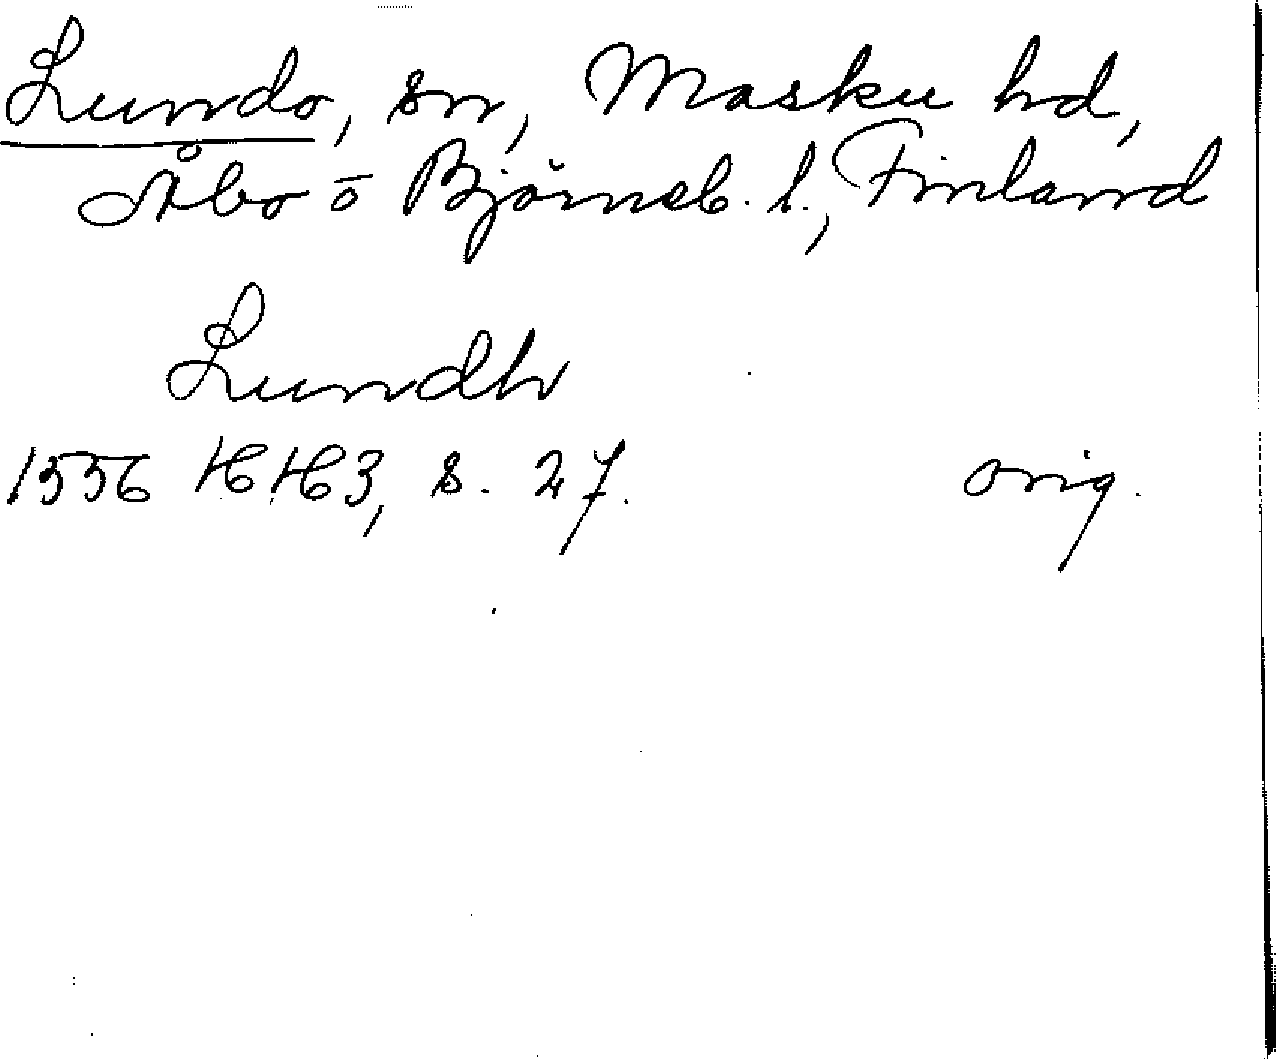 Lundo, sn, Masku hd,
Åbo ō Björneb. l., Finland
Lundh
1556 HH3, s. 27.
orig.